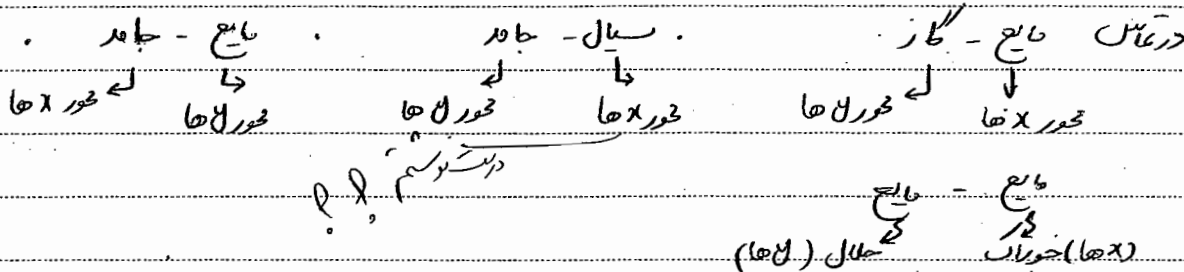 در تماس مایع - گاز . سیال - جامد . مایع - جامد .
محور x ها محور y ها محور x ها محور y ها محور y ها محور x ها
درست نوشتم ؟ ؟
مایع - مایع
(x ها) خوراک حلال (y ها)